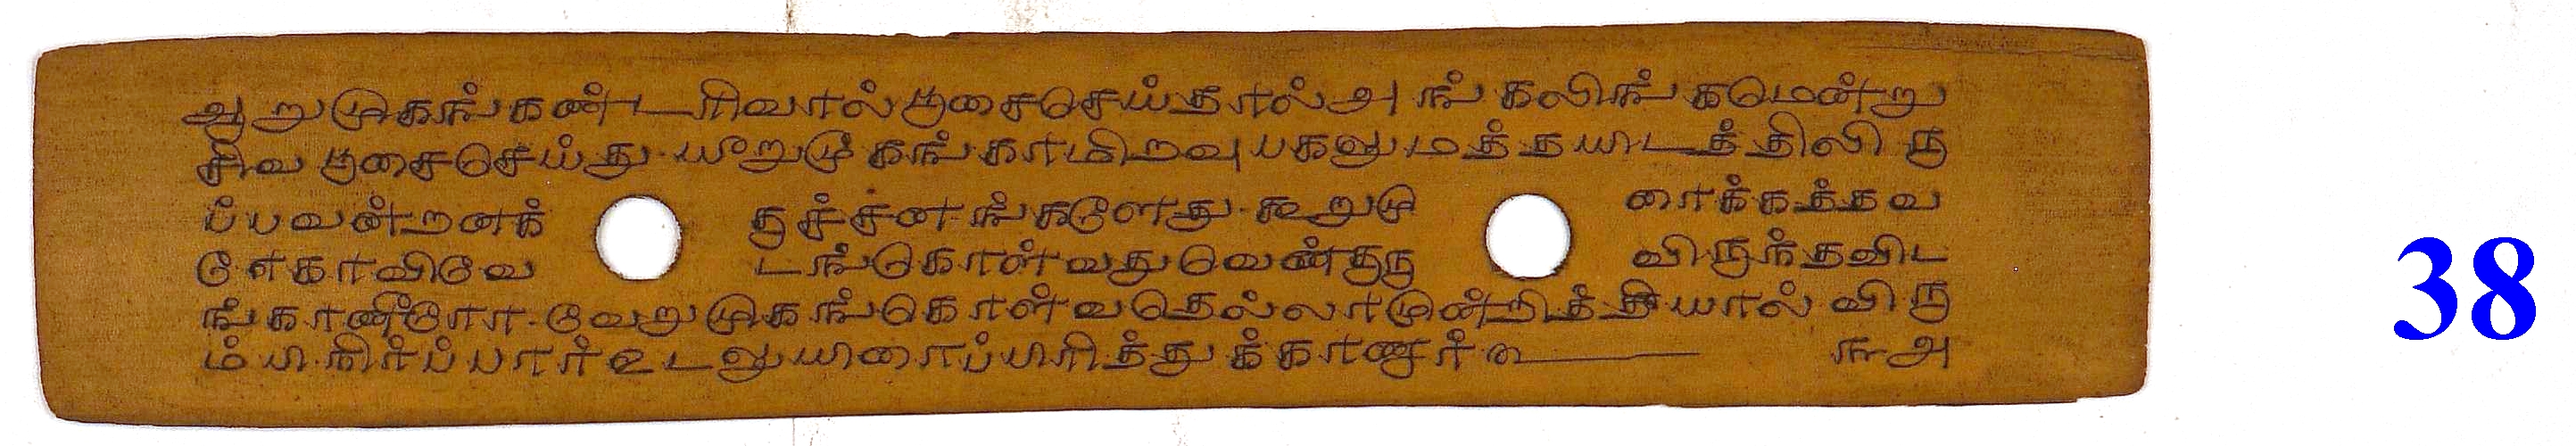 ஆறுமுகங்கண்டாிவால்பூசைசெய்தால்அங்கலிங்கமென்று
சிவபூசைசெய்து யாறுமுகங்காமிறவுபகலுமத்தயிடத்திலிரு
ப்பவன்றனக் குச்சனங்களேது கூறுமு ரைக்கத்தவ
ளேகாவிவே டங்கொள்வதுவெண்குரு விருந்தவிட
ங்காணீரோ வேறுமுகங்கொள்வதெல்லாமுன்றித்தியால் விரு
ம்பிநிர்ப்பார்உடலுயிரைப்பிரித்துக்காணார் ௩அ
38